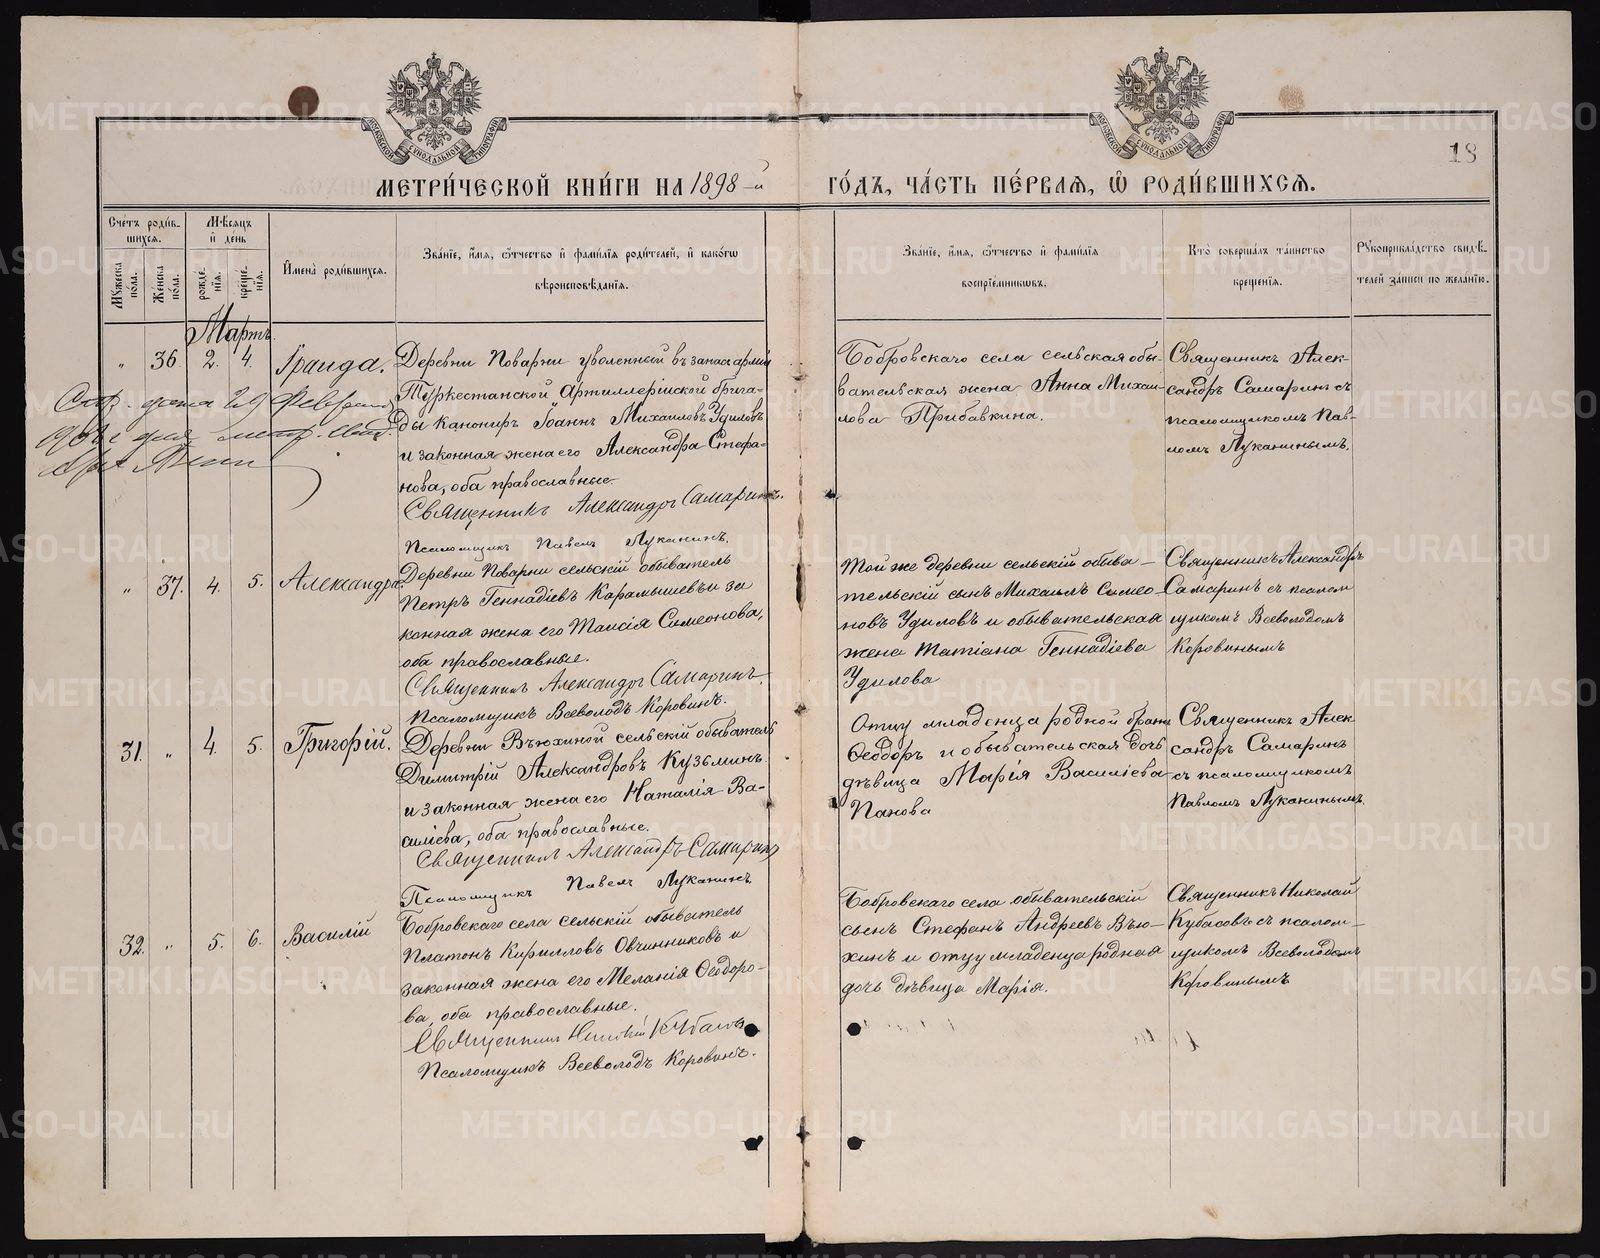 МОСКОВСКОЙ СѴНОДАЛЬНОЙ ТИПОГРАФІИ
МОСКОВСКОЙ СѴНОДАЛЬНОЙ ТИПОГРАФІИ
18
МЕТРИ́ЧЕСКОЙ КНИ́ГИ НА 1898-й
ГО́ДЪ, ЧА́СТЬ ПЕ́РВАѦ, Ѽ РОДИ́ВШИХСѦ.
Сче́тъ роди́в-
шихсѧ.
Мѣ́сѧцъ
и҆ день
Мꙋ́жеска
по́ла.
Же́нска
по́ла.
рожде́-
нїѧ.
креще́-
нїѧ.
И҆мена̀ роди́вшихсѧ.
Зва́нїе, и҆́мѧ, ѻ҆́тчество и҆ фами́лїѧ роди́телей, и҆ како́гѡ
вѣроисповѣ́данїѧ.
Зва́нїе, и҆́мѧ, ѻ҆́тчество и҆ фами́лїѧ
воспрїе́мникѡвъ.
Кто̀ соверша́лъ та́инство
креще́нїѧ.
Рꙋкоприкла́дство свидѣ́-
телей за́писи по жела́нїю.
Мартъ
„ 36 2. 4. Іраида.
Деревни Поварни уволенный въ запас арміи
Туркестанской Артиллерійской брига-
ды Канониръ Іоаннъ Михаиловъ Удиловъ
и законная жена его Александра Стефа-
нова, оба православные.
Священникъ Александръ Самаринъ.
Псаломщикъ Павелъ Луканинъ.
Бобровскаго села сельская обы-
вательская жена Анна Михаи-
лова Прибавкина.
Священникъ Алек-
сандръ Самаринъ съ
псаломщикомъ Пав-
ломъ Луканинымъ.
дата 29 Февраля
„ 37. 4. 5. Александра
Деревни Поварни сельскій обыватель
Петръ Геннадіевъ Карамышевъ и за
конная жена его Таисія Симеонова,
оба православные.
Священникъ Александръ Самаринъ.
Псаломщикъ Всеволодъ Коровинъ.
Той же деревни сельскій обыва-
тельскій сынъ Михаилъ Симео-
новъ Удиловъ и обывательская
жена Татіана Геннадіева
Удилова
Священникъ Александръ
Самаринъ съ псалом
щикомъ Всеволодомъ
Коровинымъ
31. „ 4. 5. Григорій.
Деревни Вьюхиной сельскій обыватель
Димитрій Александровъ Кузьминъ
и законная жена его Наталія Ва-
силіева, оба православные.
Священникъ Александръ Самаринъ
Псаломщикъ Павелъ Луканинъ.
Отцу младенца родной братъ
Ѳеодоръ и обывательская дочь
дѣвица Марія Василіева
Панова
Священникъ Алек
сандръ Самаринъ
съ псаломщикомъ
Павломъ Луканинымъ.
32. „ 5. 6. Василій
Бобровскаго села сельскій обыватель
Платонъ Кирилловъ Овчинниковъ и
законная жена его Меланія Ѳеодоро-
ва, оба православные.
Священникъ Николай Кубасовъ
Псаломщикъ Всеволодъ Коровинъ.
Бобровскаго села обывательскій
сынъ Стефанъ Андреевъ Вью-
хинъ и отцу младенца родная
дочь дѣвица Марія.
Священникъ Николай
Кубасовъ съ псалом-
щикомъ Всеволодомъ
Коровинымъ
METRIKI.GASO-URAL.RU